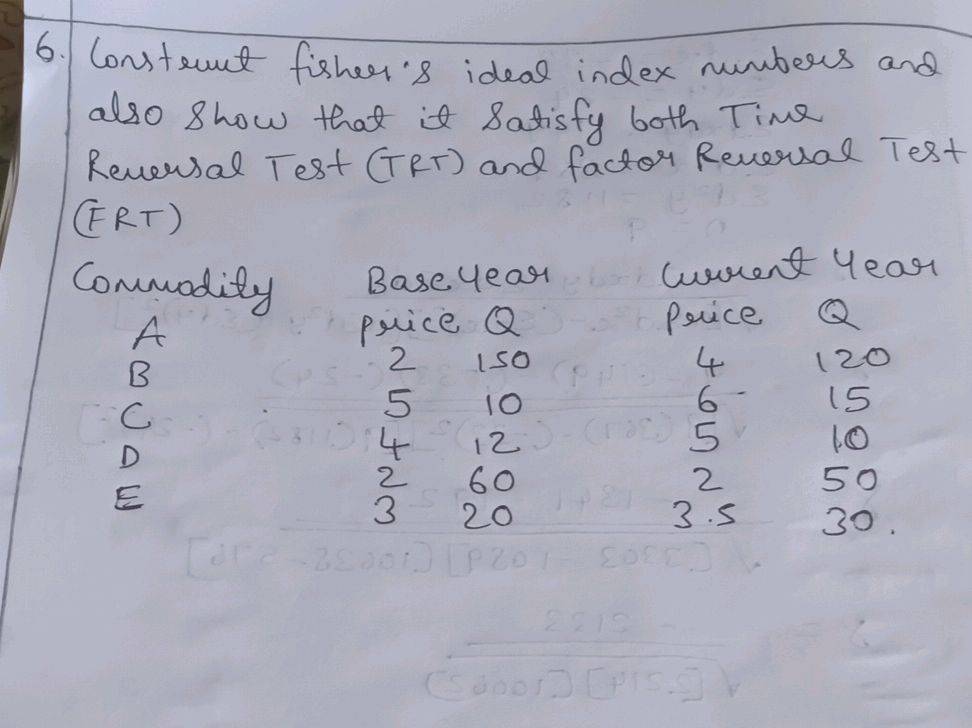 6. Construct fisher's ideal index numbers and
also show that it satisfy both Time
Reversal Test (TRT) and factor Reversal Test
(FRT)
Commodity Base Year Current Year
A price Q price Q
B 2 150 4 120
C 5 10 6 15
D 4 12 5 10
E 2 60 2 50
3 20 3.5 30.